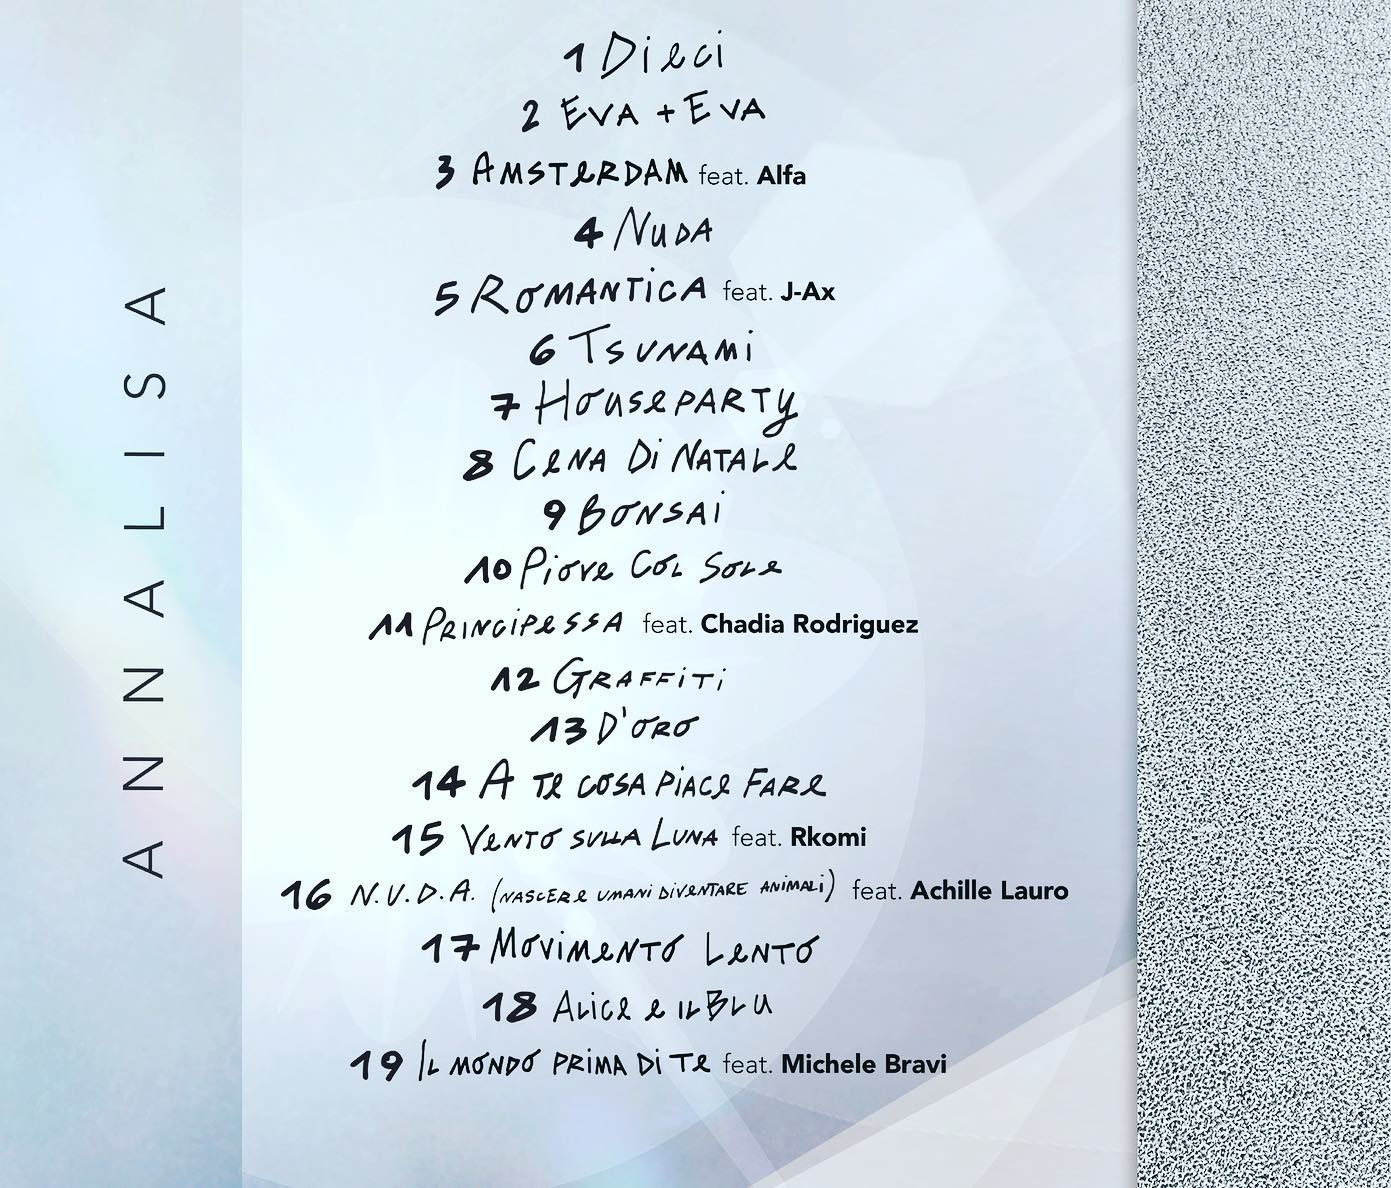 ANNALISA
1 Dieci
2 EVA + EVA
3 AMSTERDAM feat. Alfa
4 NUDA
5 ROMANTICA feat. J-Ax
6 TSUNAMI
7 HOUSEPARTY
8 CENA DI NATALE
9 BONSAI
10 Piove Col Sole
11 PRINCIPESSA feat. Chadia Rodriguez
12 GRAFFITI
13 D'ORO
14 A TE COSA PIACE FARE
15 VENTO SULLA LUNA feat. Rkomi
16 N.U.D.A. (NASCERE UMANI DIVENTARE ANIMALI) feat. Achille Lauro
17 MOVIMENTO LENTO
18 ALICE E IL BLU
19 IL MONDO PRIMA DI TE feat. Michele Bravi